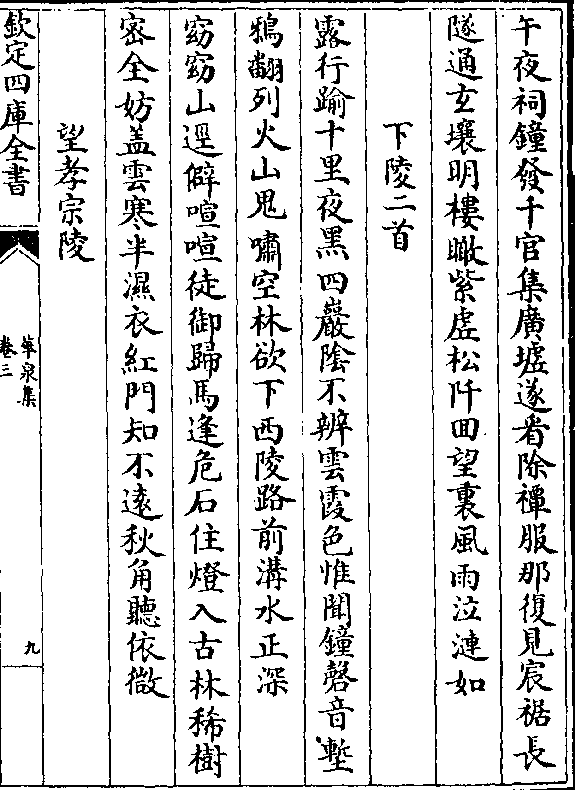 午夜祠鐘發千官集廣墟遂看除禫服那復見宸裾長
隧通玄壤明樓瞰紫虛松阡囬望裏風雨泣漣如
下陵二首
露行踰十里夜黑四巖陰不辨雲霞色惟聞鐘磬音塹
鴉翻列火山鬼嘯空林欲下西陵路前溝水正深
窈窈山逕僻喧喧徒御歸馬逢危石住燈入古林稀樹
宻全妨盖雲寒半濕衣紅門知不逺秋角聽依微
望孝宗陵
欽定四庫全書
華泉集
卷三
九